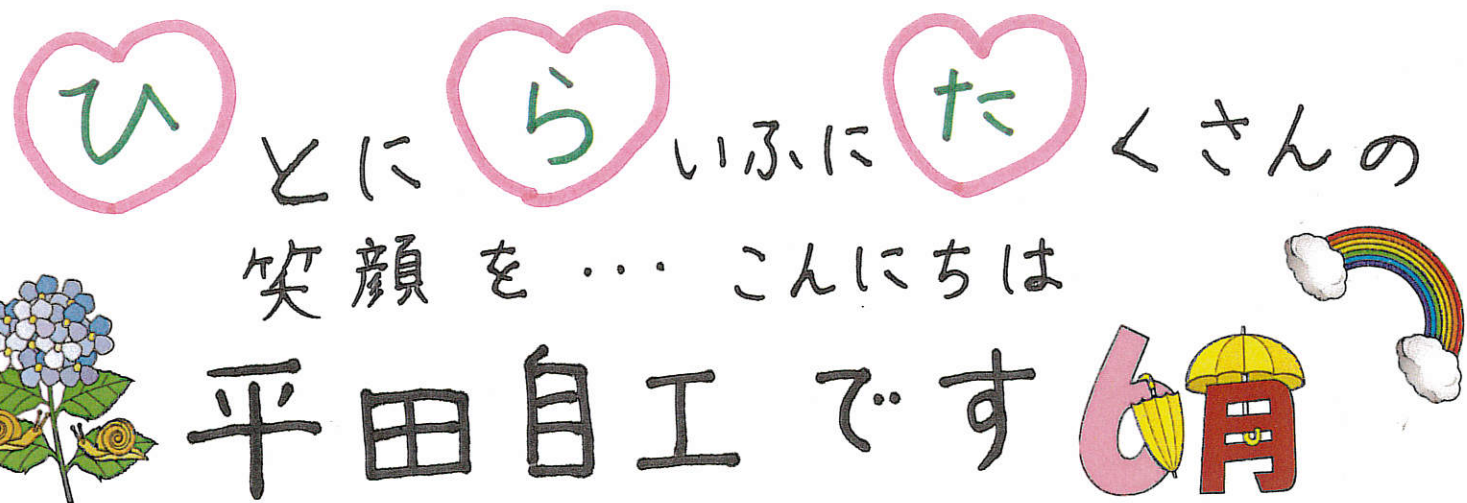 ひとにらいふにたくさんの
笑顔を…こんにちは
平田自工です6月